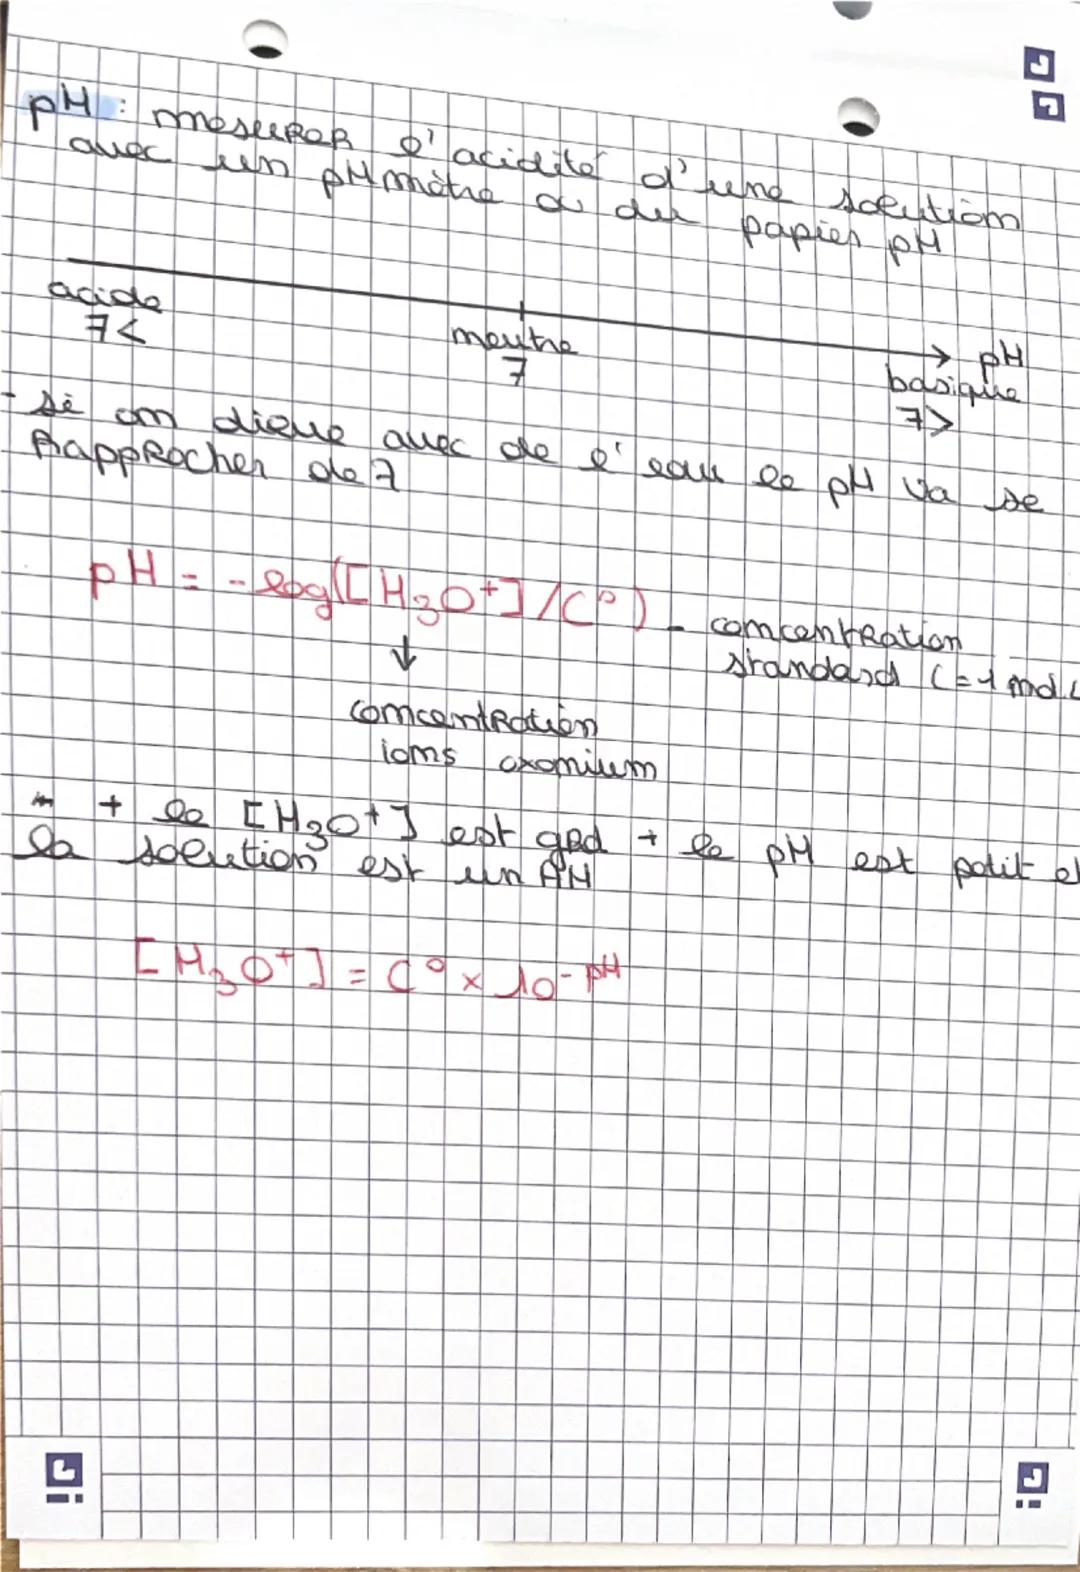 pH : mesurer l'acidité d'une solution
avec un pHmètre ou du papier pH
acide
7<
neutre
7
pH
basique
7>
- si on dilue avec de l'eau le pH va se
Rapprocher de 7
pH = -log([H3O+]/C°)
concentration
standard C=1 mol.L
↓
concentration
ions oxonium
+ le [H3O+] est grd + le pH est petit et
la solution est un AH
[H3O+] = C° × 10-pH